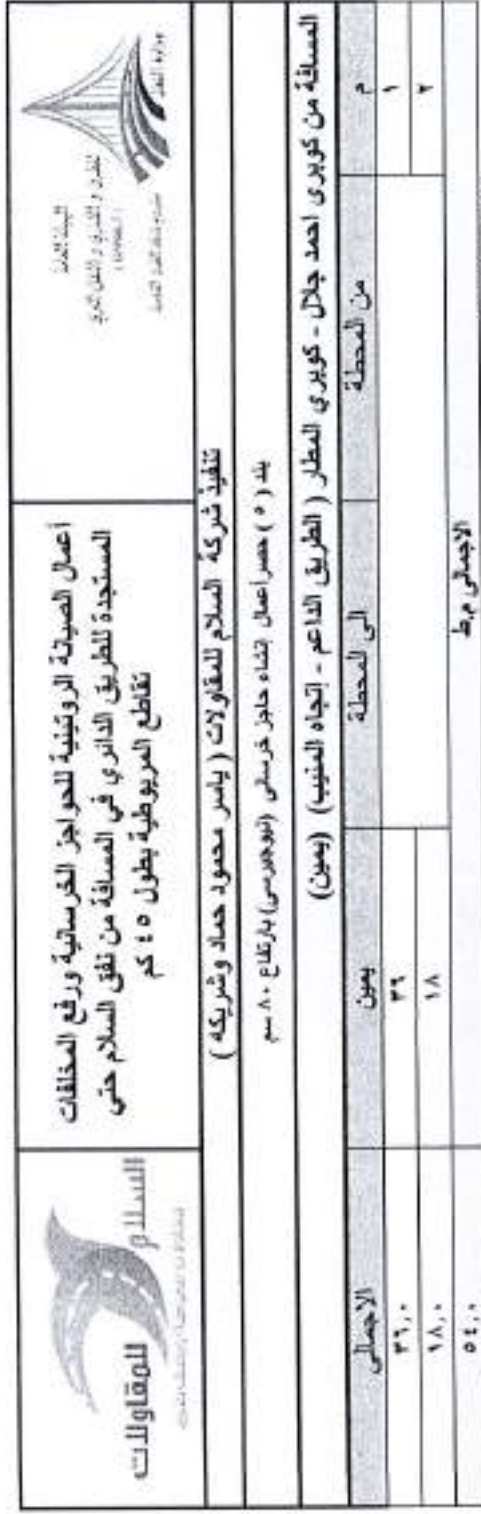 وزارة النقل
الهيئة العامة
للطرق والكباري والنقل البري
أعمال الصيانة الروتينية للحواجز الخرسانية ورفع المخلفات
المستجدة للطريق الدائري في المسافة من نفق السلام حتي
تقاطع المريوطية بطول ٤٥ كم
السلام
للمقاولات
تنفيذ شركة السلام للمقاولات ( ياسر محمود حماد وشريكه )
بند ( ٥ ) حصر أعمال إنشاء حاجز خرسانى (نيوجيرسى) بارتفاع ٨٠ سم
المسافة من كوبرى احمد جلال - كوبري المطار ( الطريق الداعم - إتجاه المنيب) (يمين)
م من المحطة الى المحطة يمين الاجمالى
١ ٣٦ ٣٦,٠
٢ ١٨ ١٨,٠
الاجمالى م.ط ٥٤,٠